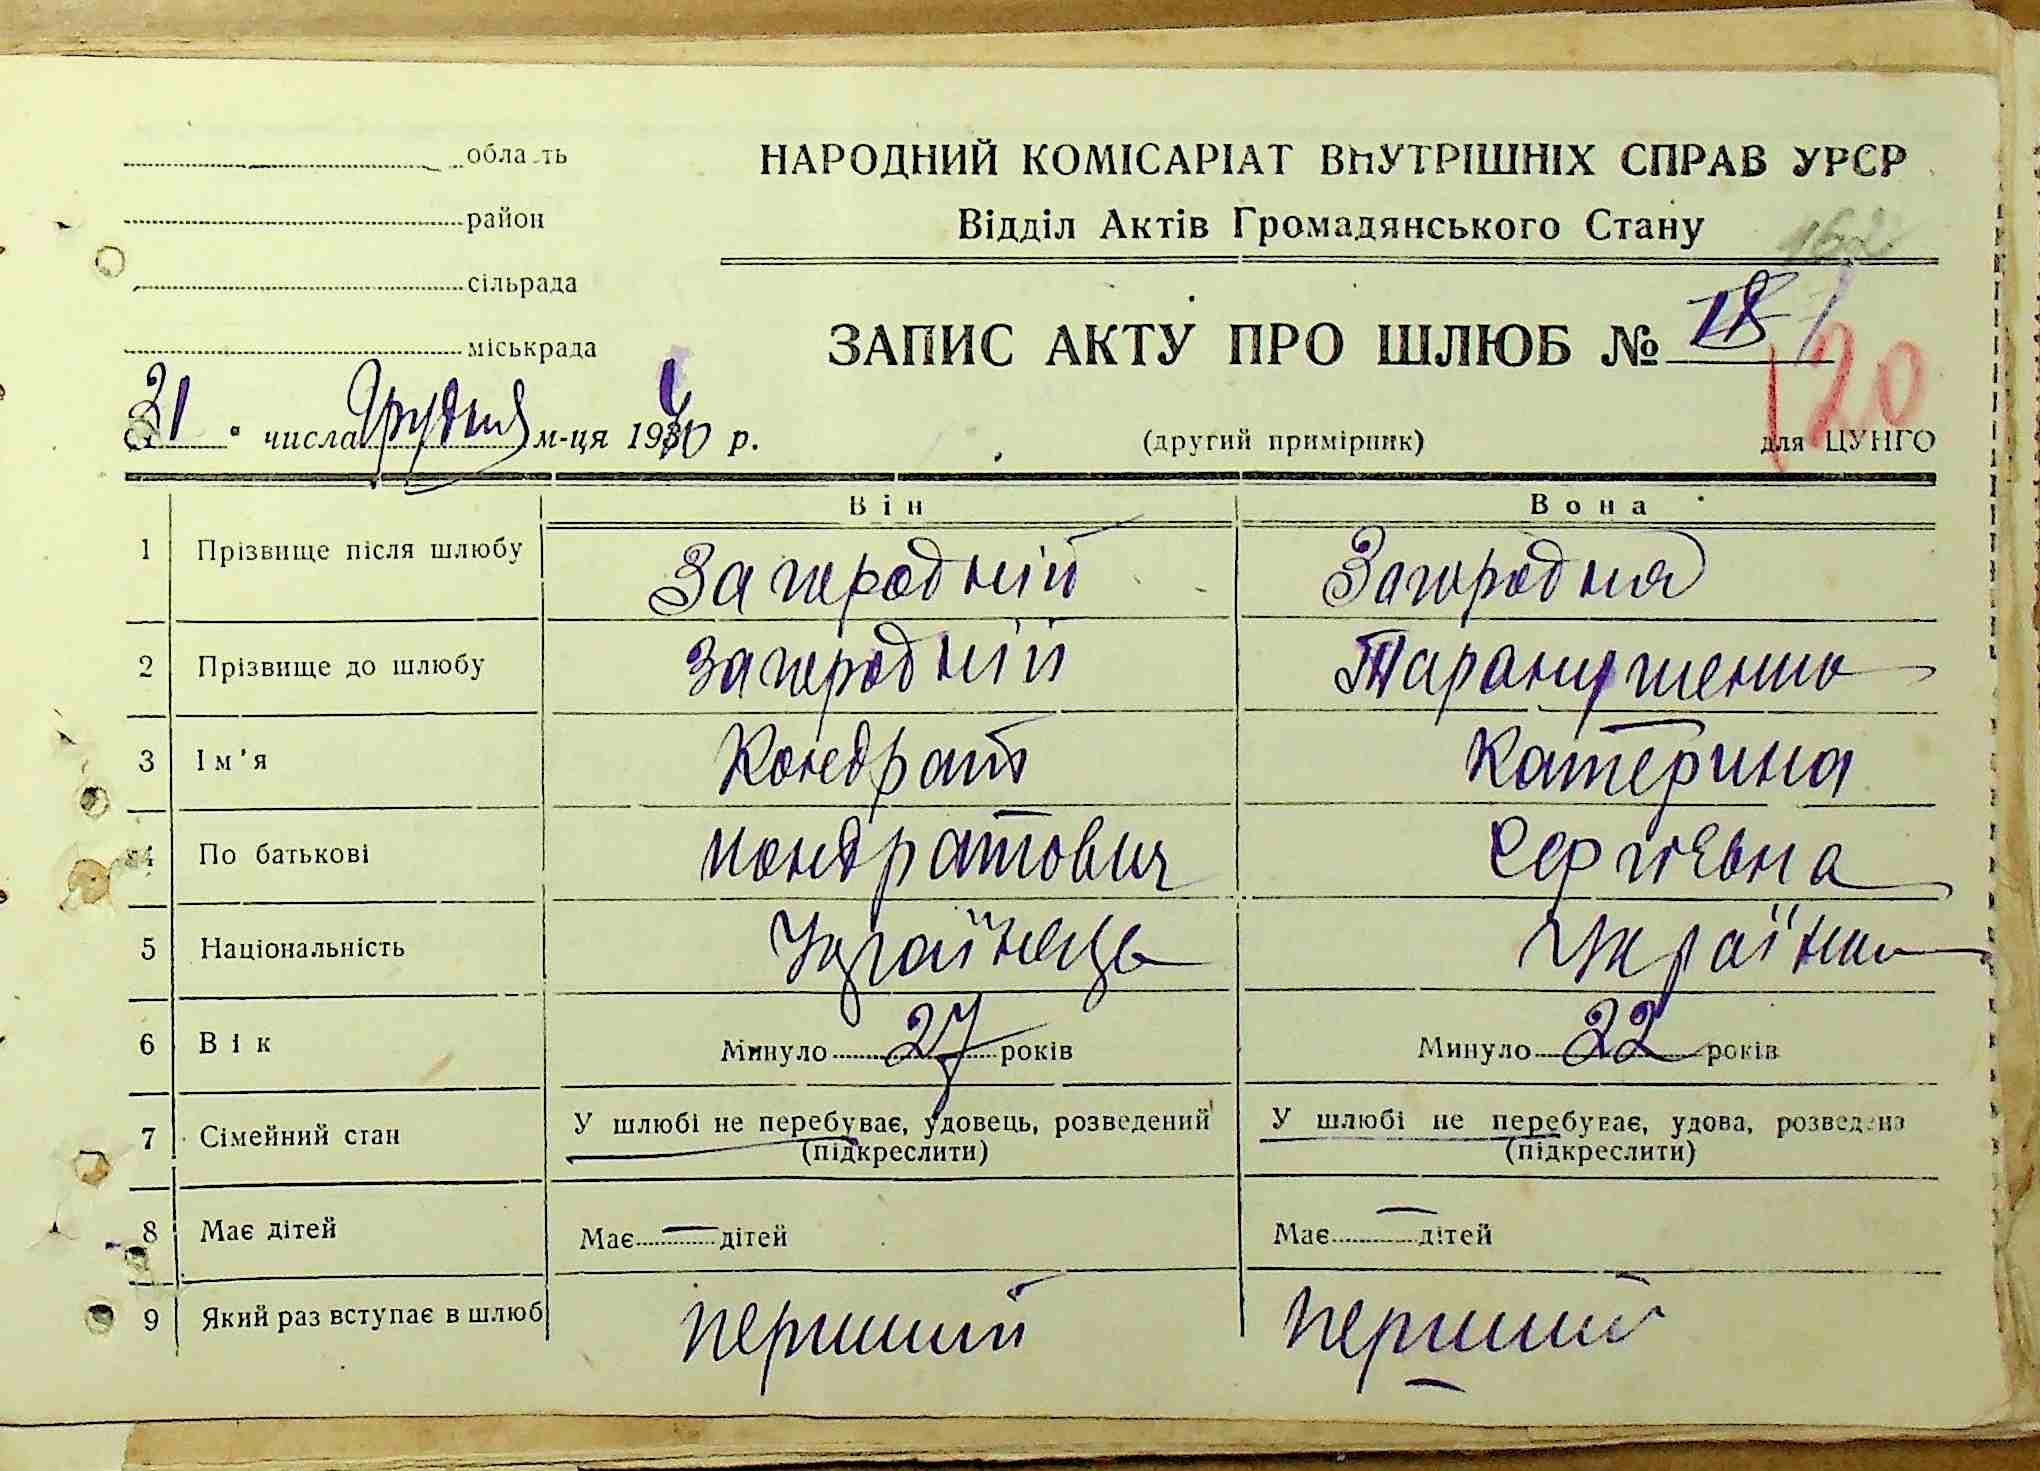 область
район
сільрада
міськрада
НАРОДНИЙ КОМІСАРІАТ ВНУТРІШНІХ СПРАВ УРСР
Відділ Актів Громадянського Стану
162
ЗАПИС АКТУ ПРО ШЛЮБ № 18
120
31 " числа Грудня м-ця 1940 р.
(другий примірник)
для ЦУНГО
Він Вона
1 Прізвище після шлюбу Загородній Загородня
2 Прізвище до шлюбу Загородній
3 Ім'я Кондрат Катерина
4 По батькові Кондратович Сергіевна
5 Національність Українець Українка
6 Вік Минуло 27 років Минуло 22 років
7 Сімейний стан У шлюбі не перебуває, удовець, розведений У шлюбі не перебуває, удова, розведена
(підкреслити) (підкреслити)
8 Має дітей Має — дітей Має — дітей
9 Який раз вступає в шлюб перший перший